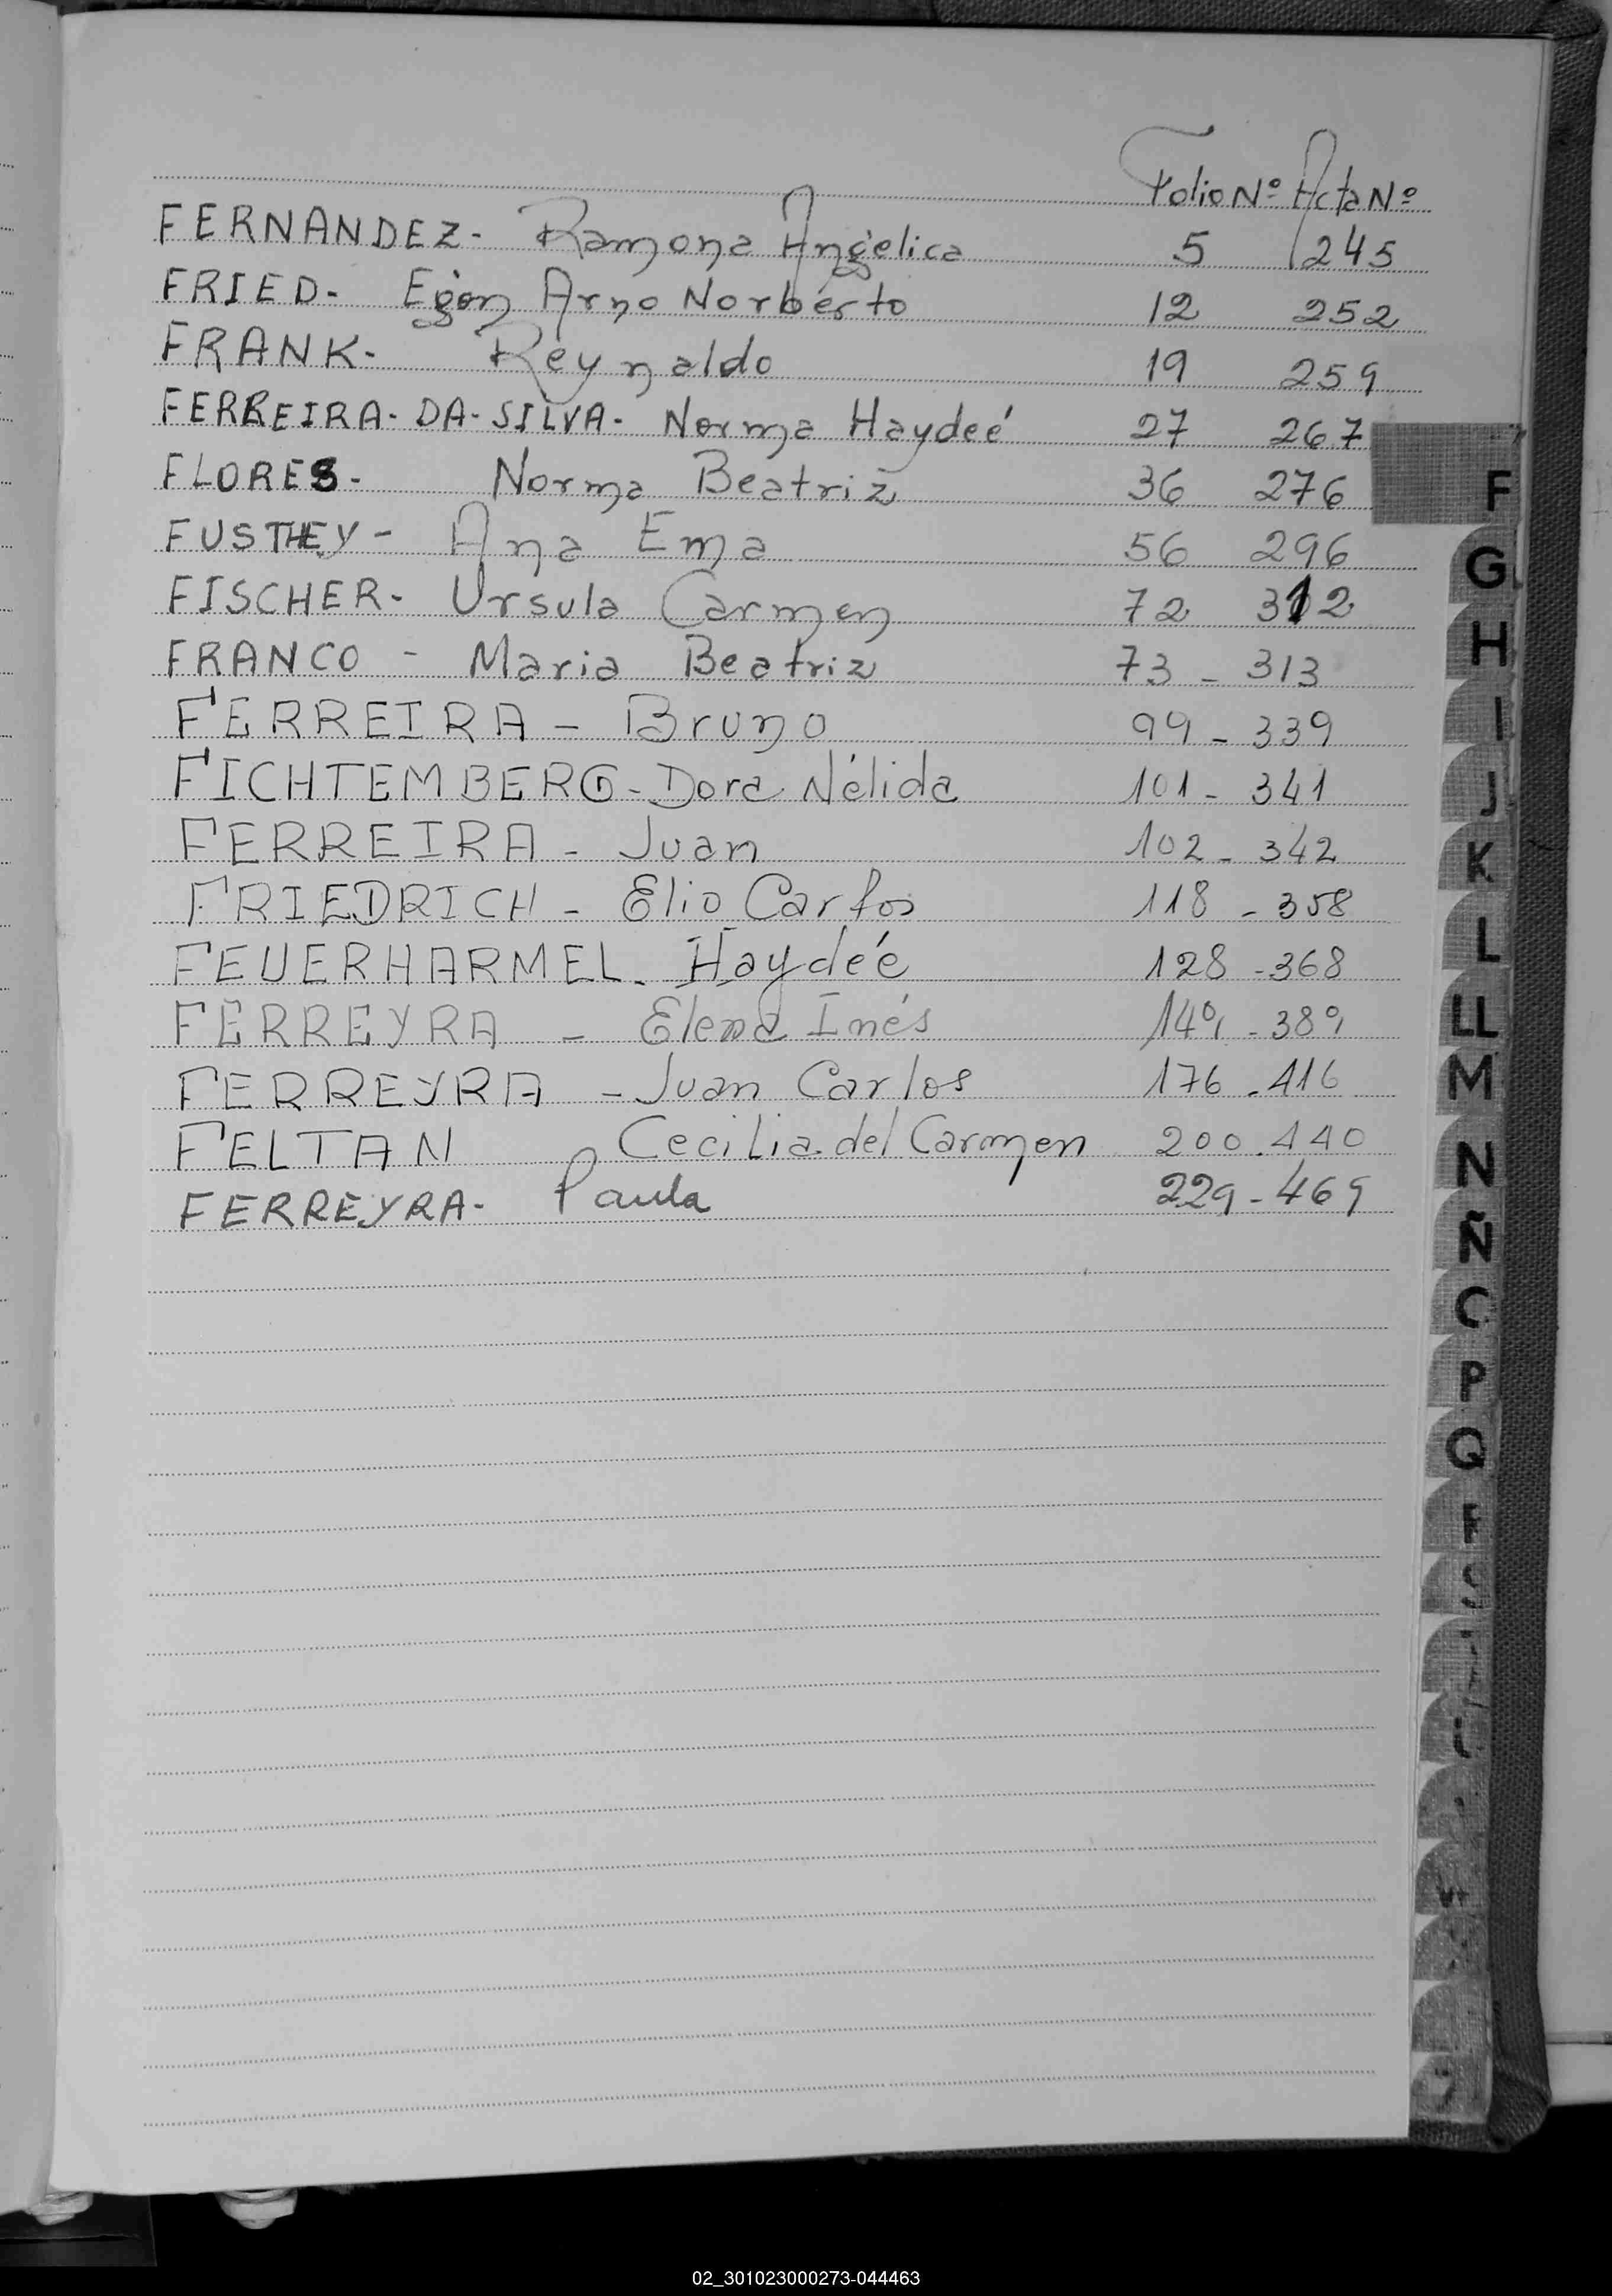 Folio Nº Acta Nº
FERNANDEZ- Ramona Angélica 5 245
FRIED- Egon Arno Norberto 12 252
FRANK- Reynaldo 19 259
FERREIRA-DA-SILVA- Norma Haydeé 27 267
FLORES- Norma Beatriz 36 276
FUSTHEY- Ana Ema 56 296
FISCHER- Ursula Carmen 72 312
FRANCO - Maria Beatriz 73 - 313
FERREIRA - Bruno 99 - 339
FICHTEMBERG - Dora Nélida 101 - 341
FERREIRA - Juan 102 - 342
FRIEDRICH - Elio Carlos 118 - 358
FEUERHARMEL. Haydée 128 - 368
FERREYRA - Elena Inés 149 - 389
FERREYRA - Juan Carlos 176 - 416
FELTAN Cecilia del Carmen 200 . 440
FERREYRA- Paula 229 - 469
F
G
H
I
J
K
L
LL
M
N
Ñ
P
Q
02_301023000273-044463